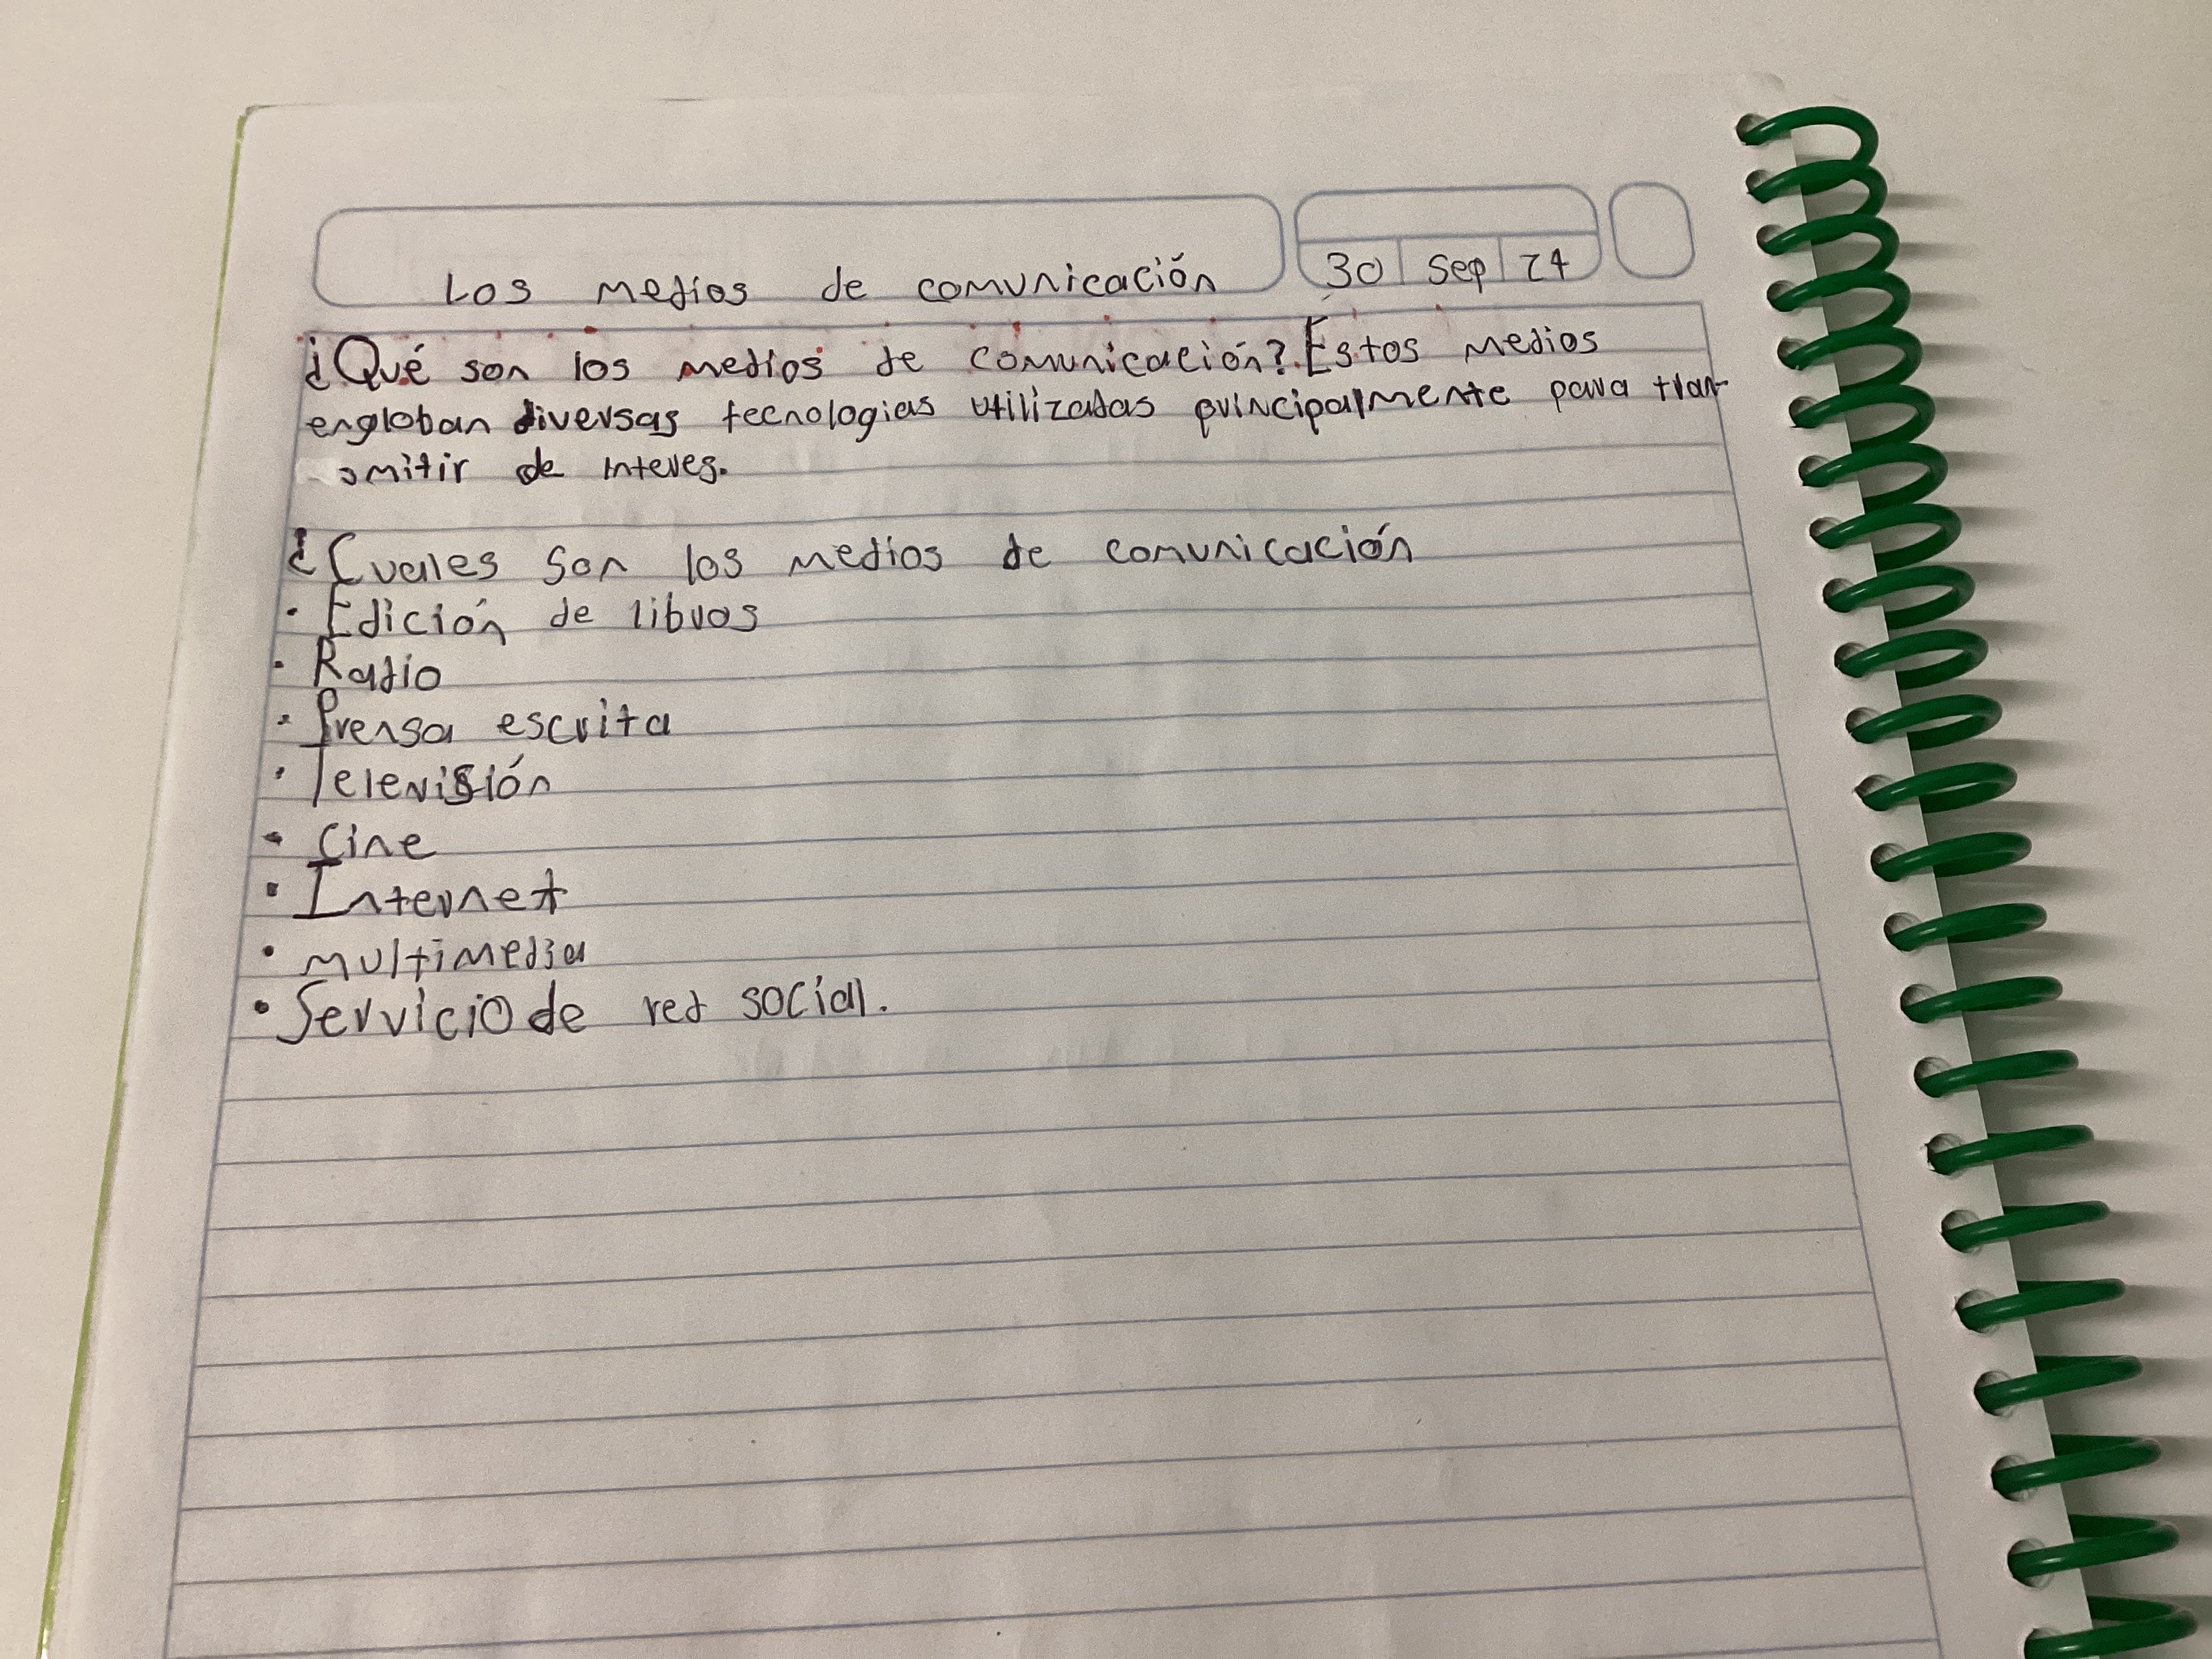 Los medios de comunicación
30 Sep 24
¿Qué son los medios de comunicación? Estos medios
engloban diversas tecnologias utilizadas principalmente para tran-
smitir de interes.
¿Cuales son los medios de comunicación
• Edición de libros
• Radio
• Prensa escrita
• Televisión
• Cine
• Internet
• multimedia
• Servicio de red social.